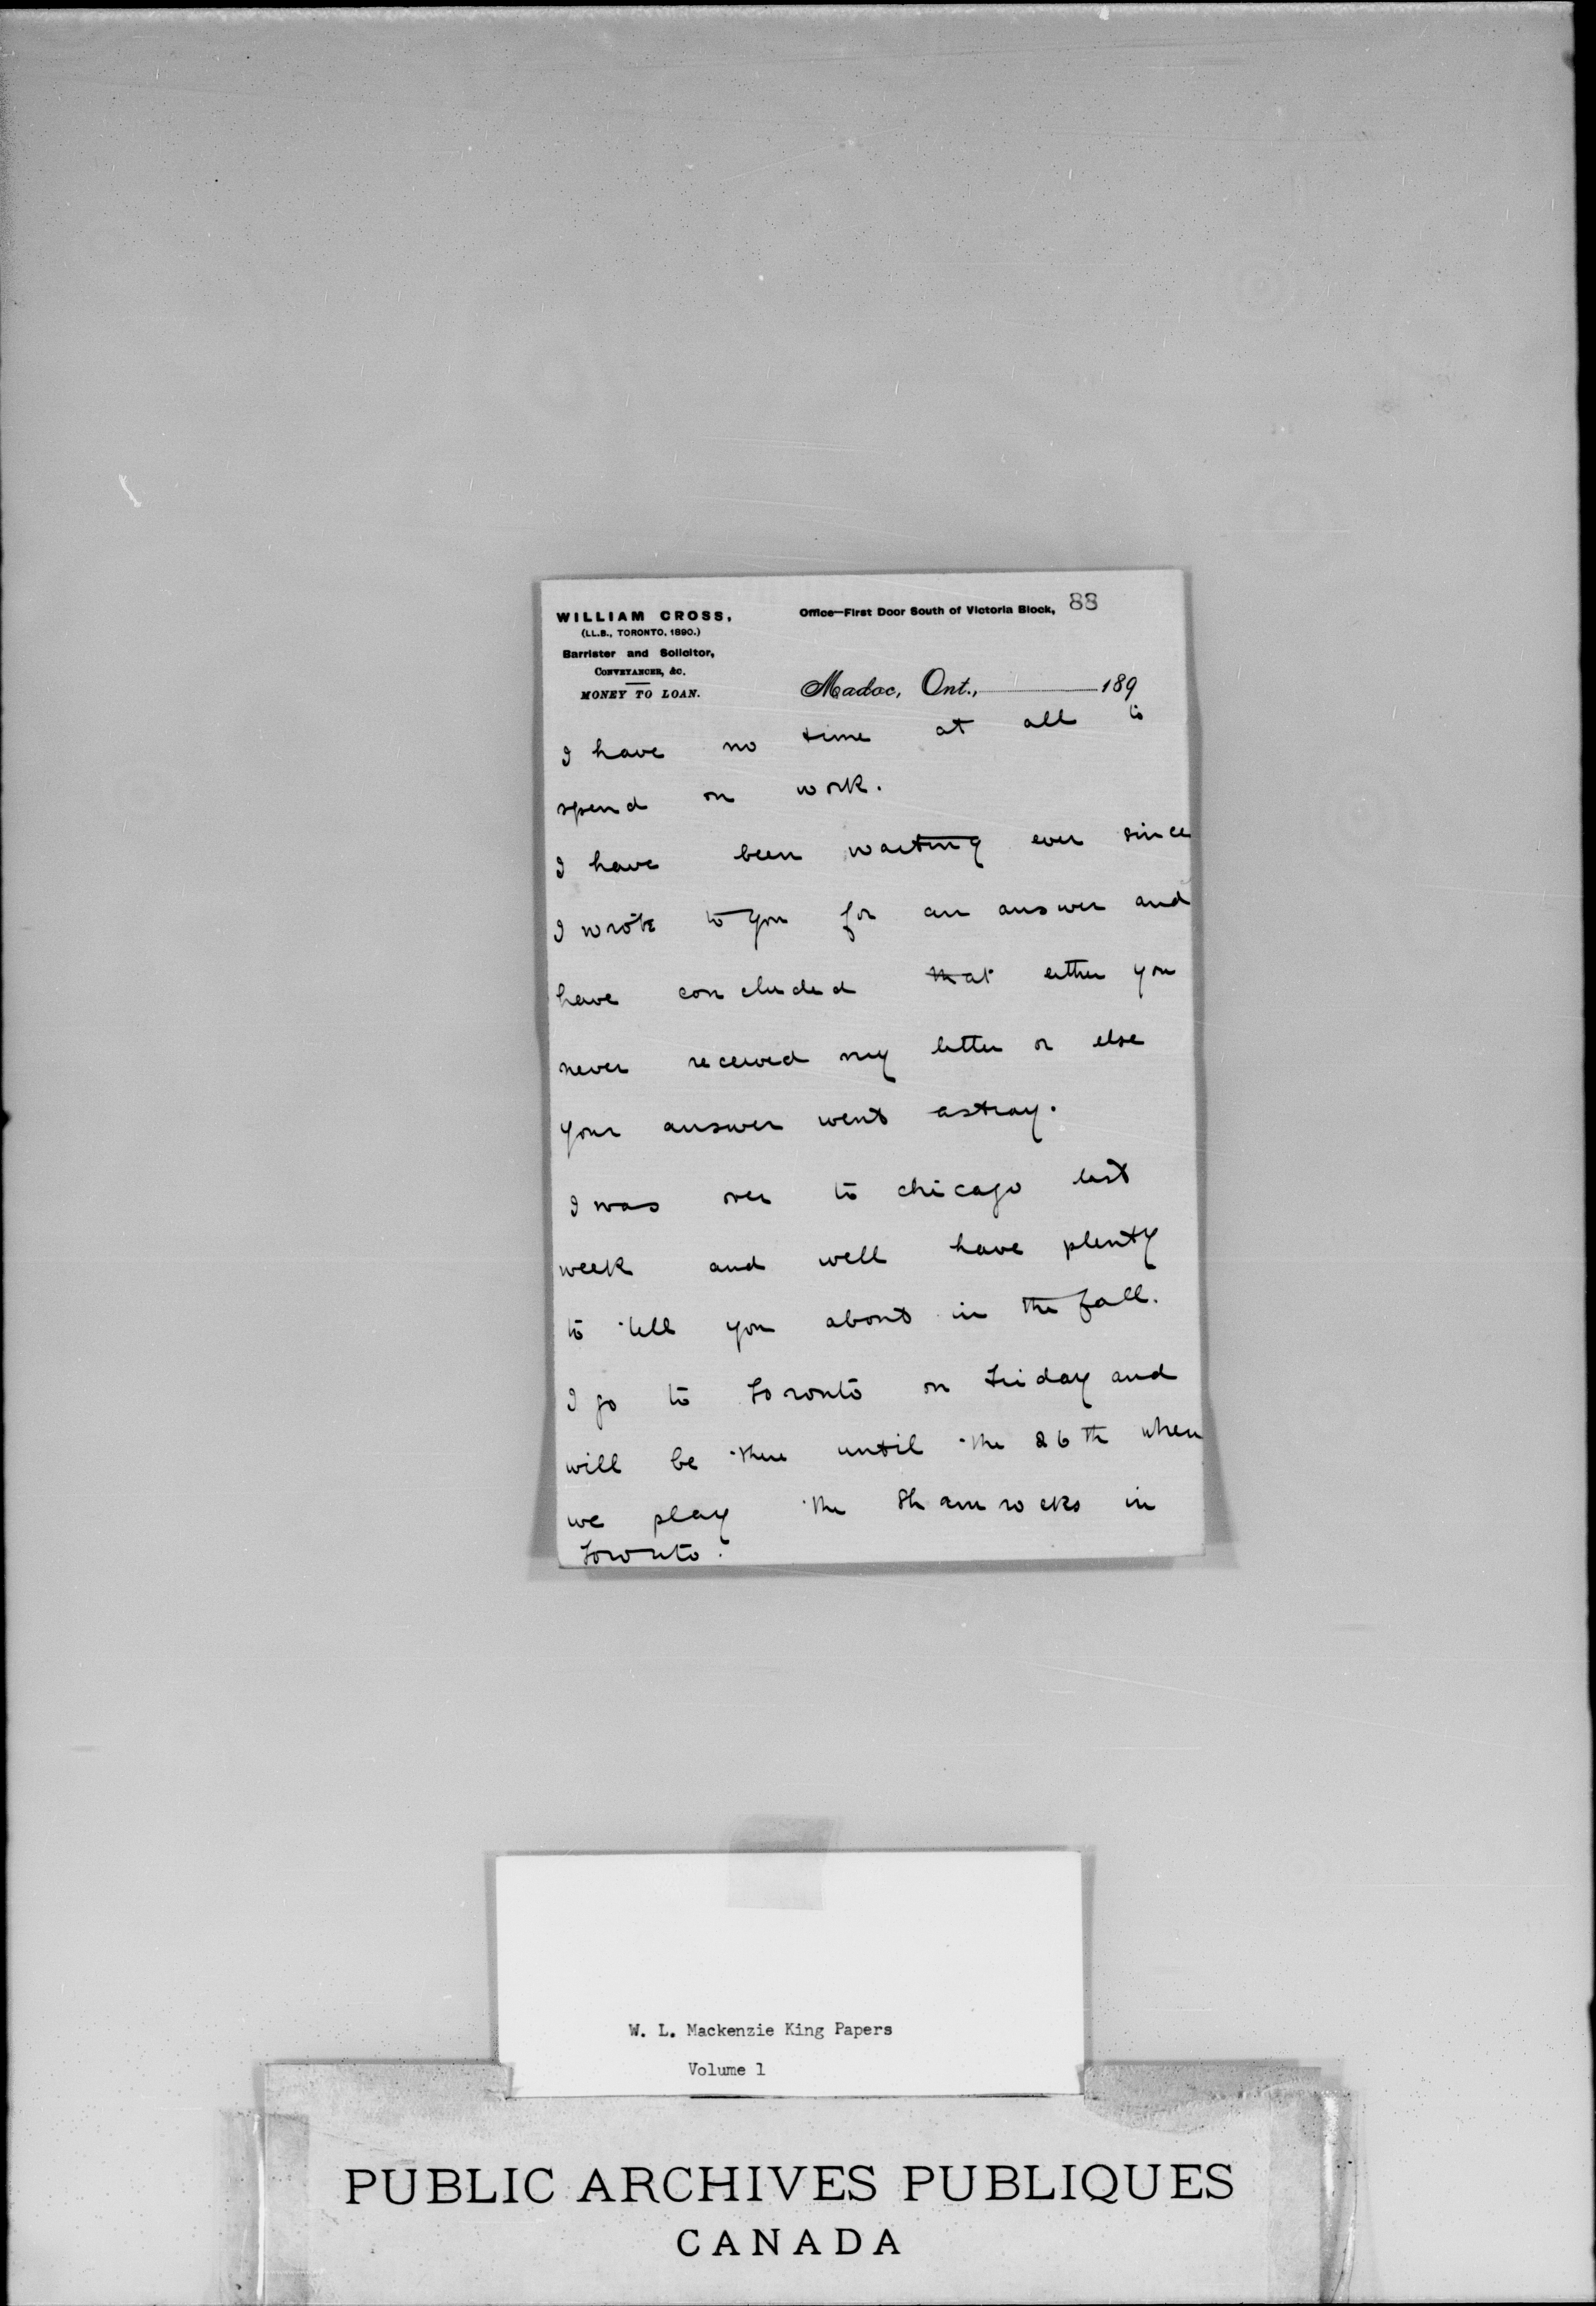 WILLIAM CROSS,
(LL.B., TORONTO, 1890.)
Barrister and Solicitor,
CONVEYANCER, &C.
MONEY TO LOAN.
Office—First Door South of Victoria Block,
88
Madoc, Ont., 189
I have no time at all to
spend on work.
I have been waiting ever since
I wrote to you for an answer and
have concluded that either you
never received my letter or else
your answer went astray.
I was over to chicago last
week and will have plenty
to tell you about in the fall.
I go to Toronto on Friday and
will be there until the 26th when
we play the Shamrocks in
Toronto.
W. L. Mackenzie King Papers
Volume 1
PUBLIC ARCHIVES PUBLIQUES
CANADA